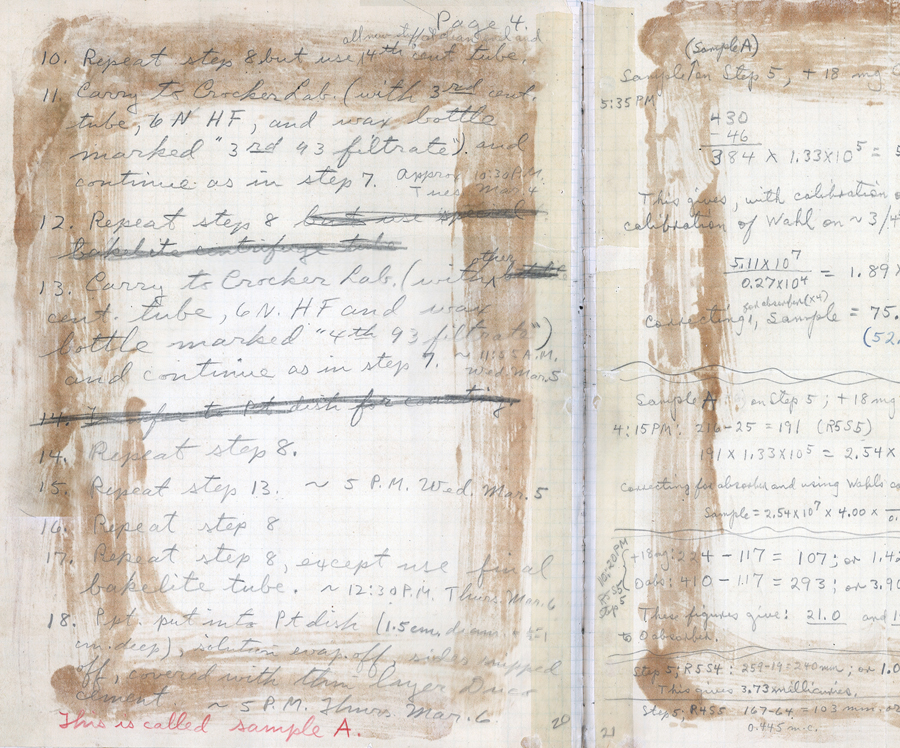 Page 4.
10. Repeat step 8, but use 4th cent. tube.
11. Carry to Crocker Lab. (with 3rd cent.
tube, 6N HF, and wax bottle
marked "3rd 93 filtrate") and
continue as in step 7. approx. 10:30 P.M.
Tues. Mar. 4
12. Repeat step 8 but use special
bakelite centrifuge tube
13. Carry to Crocker Lab. (with other
cent. tube, 6N. HF and wax
bottle marked "4th 93 filtrate")
and continue as in step 7. ~ 11:55 A.M.
Wed. Mar. 5
14. Transfer to Pt dish for counting.
14. Repeat step 8.
15. Repeat step 13. ~ 5 P.M. Wed. Mar. 5
16. Repeat step 8
17. Repeat step 8, except use final
bakelite tube. ~ 12:30 P.M. Thurs. Mar. 6
18. Ppt. put into Pt dish (1.5 cm. diam.
cm. deep), solution evap. off, sides wiped
off, covered with thin layer Duco
cement ~ 5 P.M. Thurs. Mar. 6.
This is called sample A.
20
(Sample A)
Sample on Step 5, + 18 mg
5:35 PM
430
- 46
384 X 1.33X10⁵ =
This gives, with calibration
calibration of Wahl on ~ 3/4
5.11X10⁷
0.27X10⁴
= 1.89X
for absorber (x4)
Correcting, Sample = 75.
(52.
Sample A. on Step 5; +18 mg
4:15 PM: 216-25 = 191 (R5S5)
191 X 1.33X10⁵ = 2.54X
Correcting for absorber and using Wahl's
Sample = 2.54X10⁷ X 4.00 X
10:20 PM
R5S5
Step 5
+18mg: 224 - 117 = 107; or 1.42
0 abs: 410 - 117 = 293; or 3.90
This figures give: 21.0 and
to 0 absorber.
Step 5; R5S4: 259-19=240 min; or 1.0
This gives 3.73 millicuries.
Step 5; R4S5 167-64 = 103 mm. or
0.445 m.c.
21